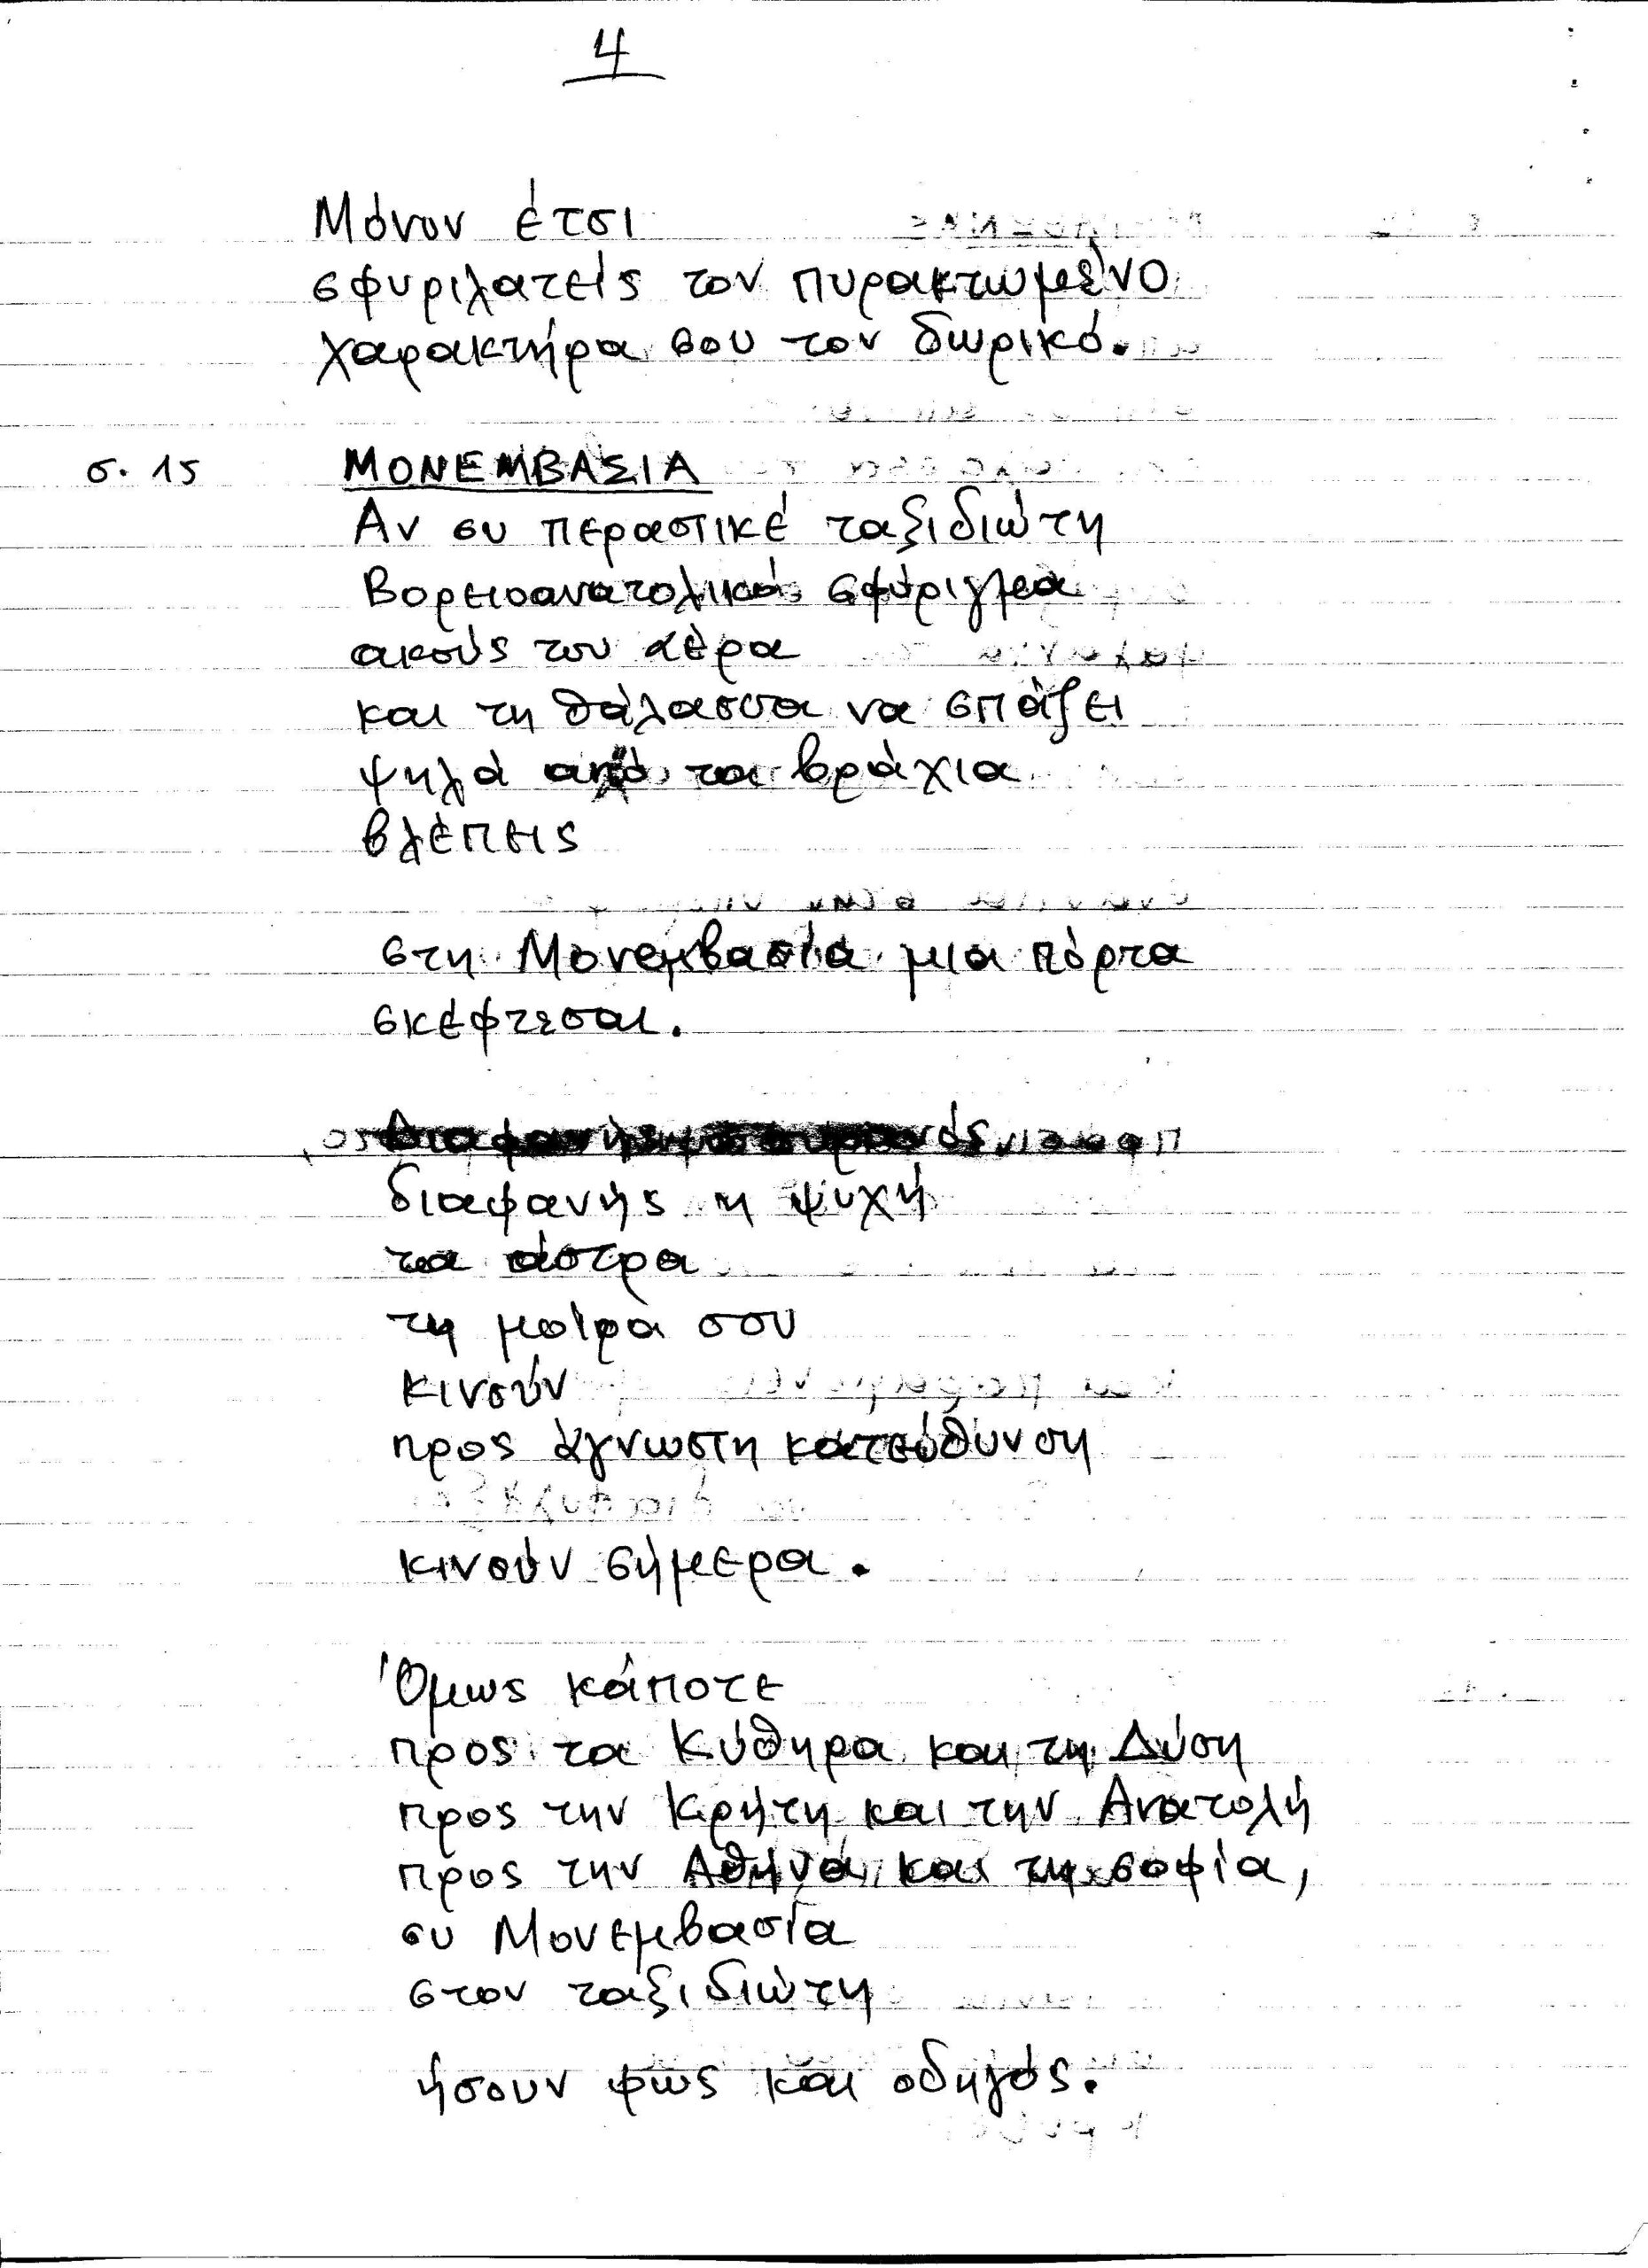 4
Μόνον έτσι
σφυριλατείς τον πυρακτωμένο
χαρακτήρα σου τον δωρικό.
σ. 15 ΜΟΝΕΜΒΑΣΙΑ
Αν συ περαστικέ ταξιδιώτη
βορειοανατολικό σφύριγμα
ακούς του αέρα
και τη θάλασσα να σπάζει
ψηλά από τα βράχια
βλέπεις
στη Μονεμβασία μια πόρτα
σκέφτεσαι.
διαφανής η ψυχή
τα άστρα
τη μοίρα σου
κινούν
προς άγνωστη κατεύθυνση
κινούν σήμερα.
Όμως κάποτε
προς τα Κύθηρα και τη Δύση
προς την Κρήτη και την Ανατολή
προς την Αθήνα και τη σοφία,
συ Μονεμβασία
στον ταξιδιώτη
ήσουν φως και οδηγός.